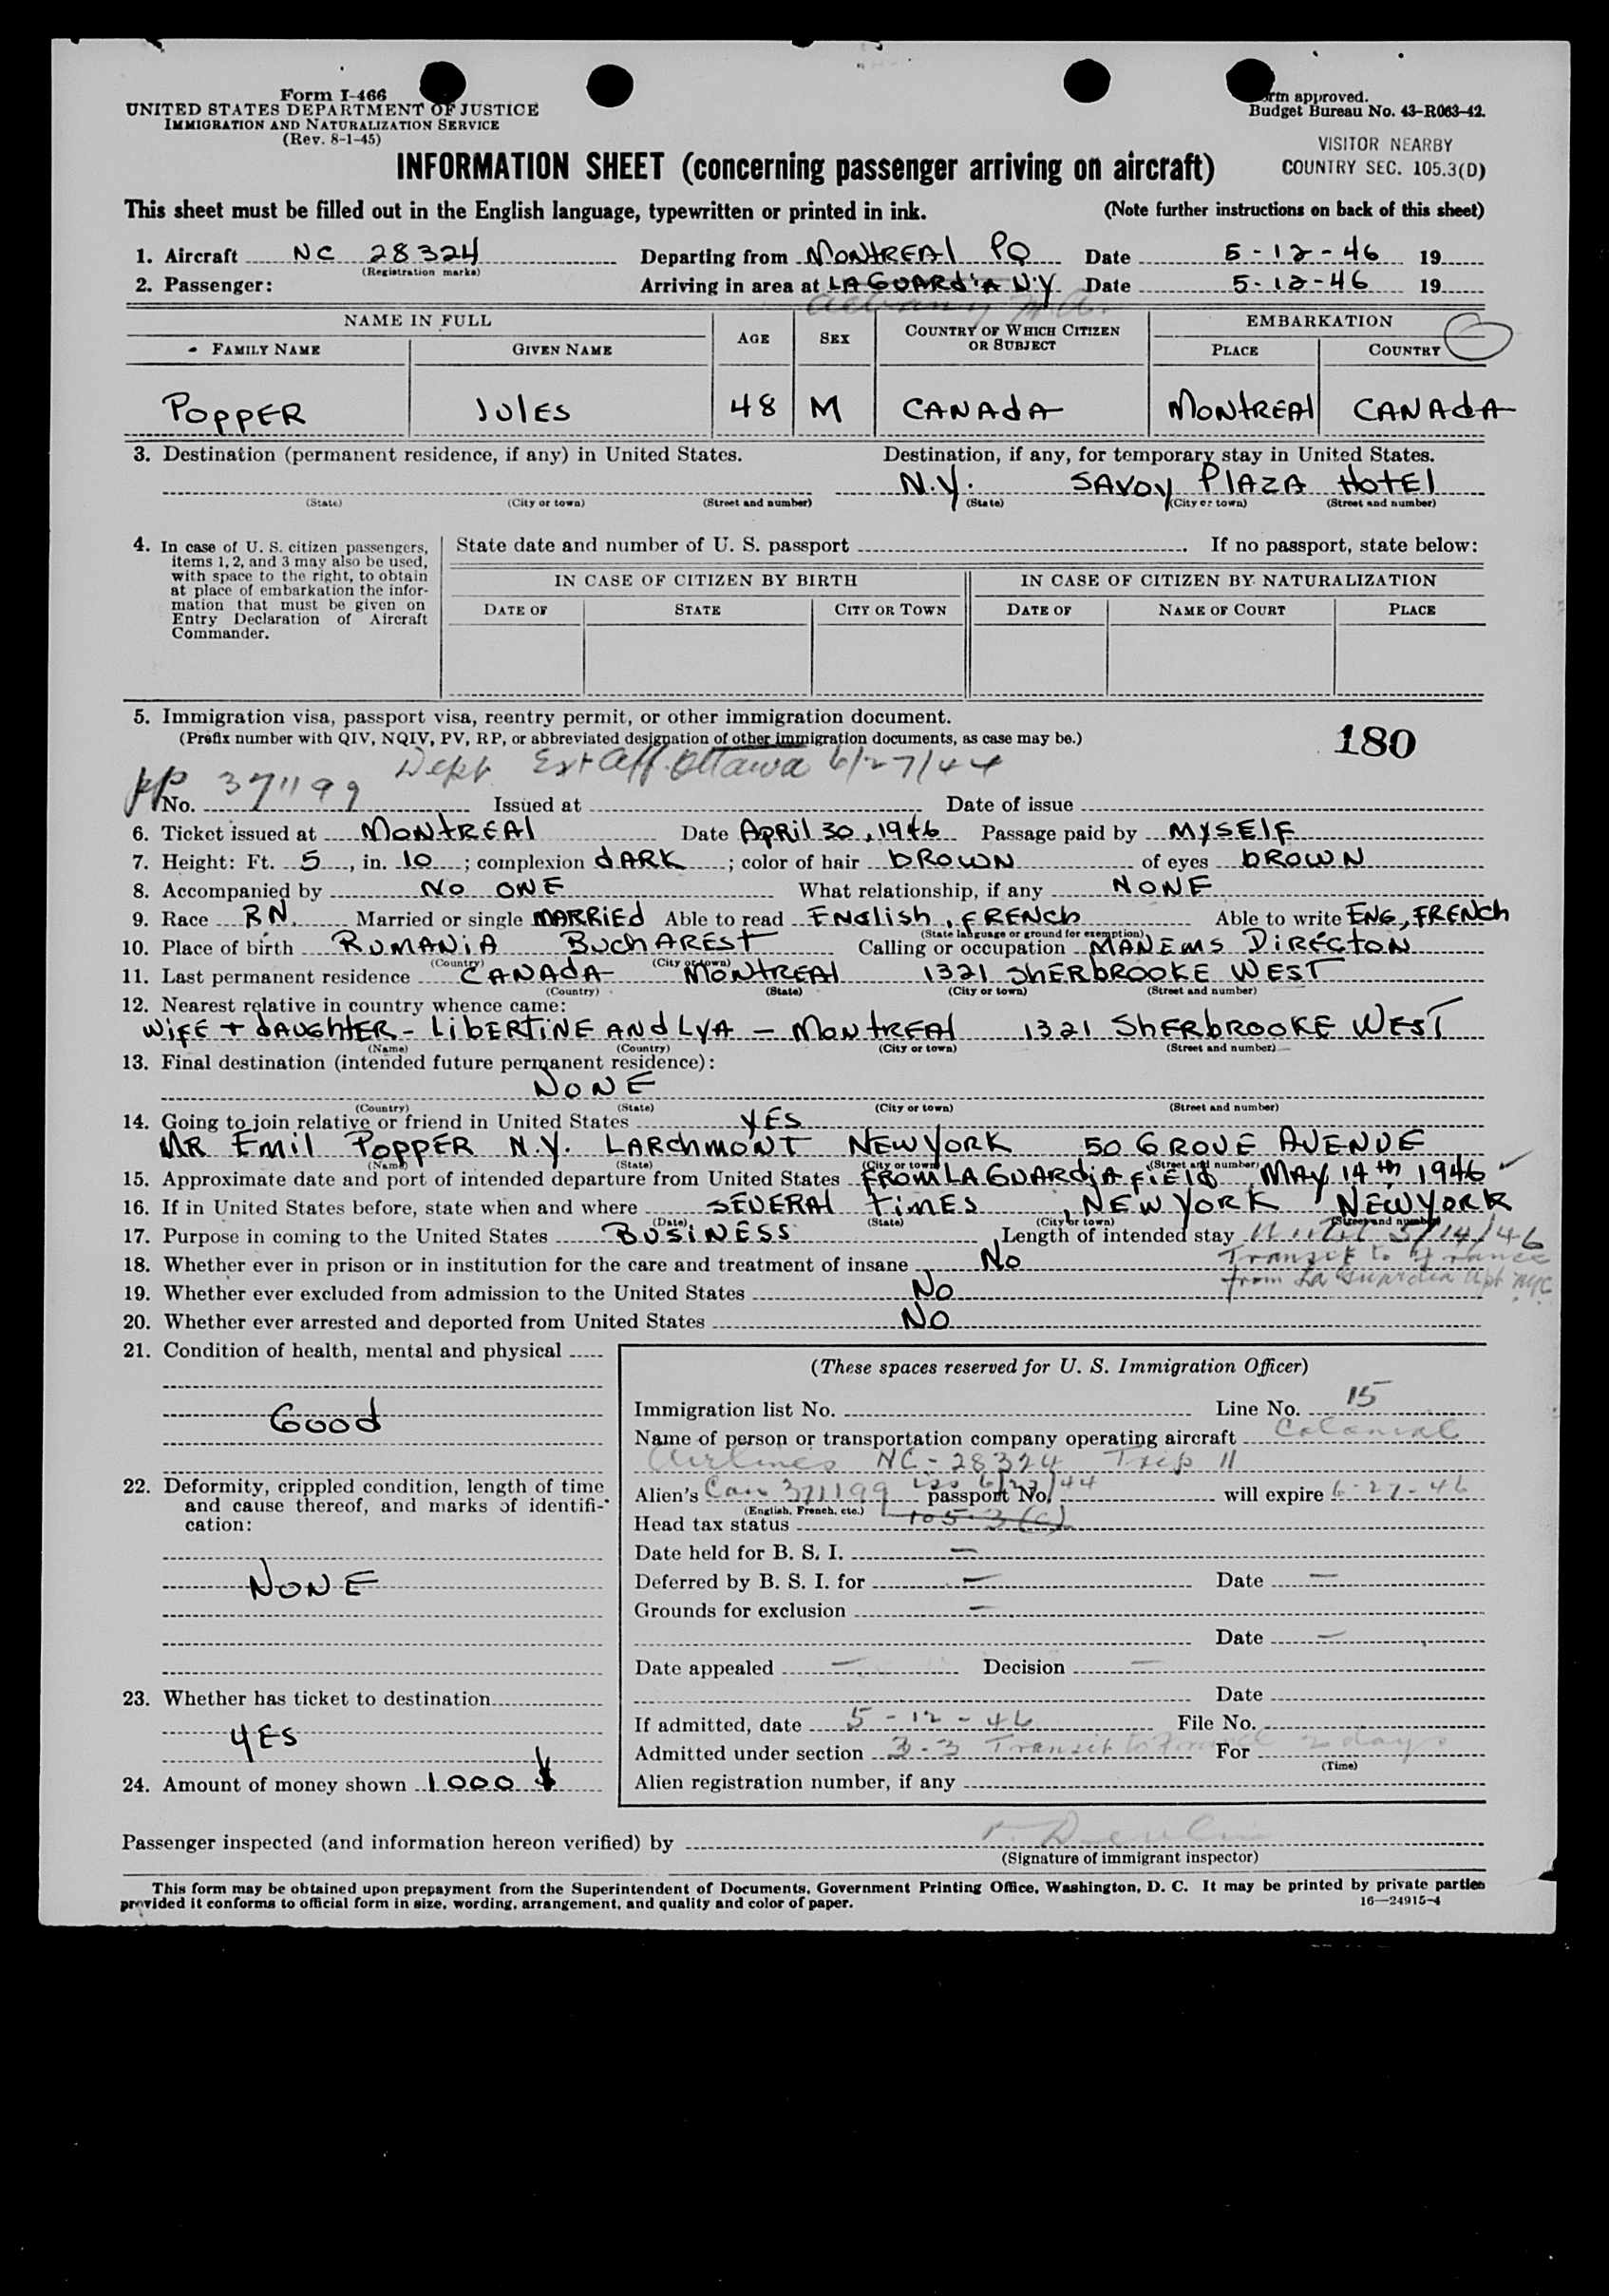 Form I-466
UNITED STATES DEPARTMENT OF JUSTICE
IMMIGRATION AND NATURALIZATION SERVICE
(Rev. 8-1-45)
approved.
Budget Bureau No. 43-R063-42.
VISITOR NEARBY
COUNTRY SEC. 105.3(D)
INFORMATION SHEET (concerning passenger arriving on aircraft)
This sheet must be filled out in the English language, typewritten or printed in ink. (Note further instructions on back of this sheet)
1. Aircraft NC 28324 Departing from MONTREAL PQ Date 5-12-46 19
(Registration marks)
2. Passenger: Arriving in area at LA GUARDIA N.Y Date 5-12-46 19
Albany
NAME IN FULL AGE SEX COUNTRY OF WHICH CITIZEN OR SUBJECT EMBARKATION
FAMILY NAME GIVEN NAME PLACE COUNTRY
POPPER JULES 48 M CANADA MONTREAL CANADA
3. Destination (permanent residence, if any) in United States. Destination, if any, for temporary stay in United States.
N.Y. SAVOY PLAZA HOTEL
(State) (City or town) (Street and number) (State) (City or town) (Street and number)
4. In case of U. S. citizen passengers, items 1, 2, and 3 may also be used, with space to the right, to obtain at place of embarkation the information that must be given on Entry Declaration of Aircraft Commander.
State date and number of U. S. passport . If no passport, state below:
IN CASE OF CITIZEN BY BIRTH IN CASE OF CITIZEN BY NATURALIZATION
DATE OF STATE CITY OR TOWN DATE OF NAME OF COURT PLACE
5. Immigration visa, passport visa, reentry permit, or other immigration document.
(Prefix number with QIV, NQIV, PV, RP, or abbreviated designation of other immigration documents, as case may be.)
180
pp 371199 Dept Ext Aff. Ottawa 6/27/44
No. Issued at Date of issue
6. Ticket issued at MONTREAL Date APRIL 30, 1946 Passage paid by MYSELF
7. Height: Ft. 5, in. 10; complexion DARK; color of hair BROWN of eyes BROWN
8. Accompanied by NO ONE What relationship, if any NONE
9. Race RN. Married or single MARRIED Able to read ENGLISH, FRENCH Able to write ENG, FRENCH
(State language or ground for exemption)
10. Place of birth RUMANIA BUCHAREST Calling or occupation DIRECTOR
(Country) (City or town)
11. Last permanent residence CANADA MONTREAL 1321 SHERBROOKE WEST
(Country) (State) (City or town) (Street and number)
12. Nearest relative in country whence came:
WIFE + DAUGHTER - LIBERTINE AND LYA - MONTREAL 1321 SHERBROOKE WEST
(Name) (Country) (City or town) (Street and number)
13. Final destination (intended future permanent residence):
NONE
(Country) (State) (City or town) (Street and number)
14. Going to join relative or friend in United States YES
MR EMIL POPPER N.Y. LARCHMONT NEW YORK 50 GROVE AVENUE
(Name) (State) (City or town) (Street and number)
15. Approximate date and port of intended departure from United States FROM LA GUARDIA FIELD MAY 14th 1946
16. If in United States before, state when and where SEVERAL TIMES, NEW YORK NEW YORK
(Date) (State) (City or town) (Street and number)
17. Purpose in coming to the United States BUSINESS Length of intended stay Until 5/14/46
Transit to France
from La Guardia Apt NYC
18. Whether ever in prison or in institution for the care and treatment of insane NO
19. Whether ever excluded from admission to the United States NO
20. Whether ever arrested and deported from United States NO
21. Condition of health, mental and physical
GOOD
22. Deformity, crippled condition, length of time and cause thereof, and marks of identification:
NONE
23. Whether has ticket to destination
YES
24. Amount of money shown 1000 $
(These spaces reserved for U. S. Immigration Officer)
Immigration list No. Line No. 15
Name of person or transportation company operating aircraft Colonial
Airlines NC-28324 Trip 11
Alien's Can 371199 iss 6/27/44 passport No. will expire 6-27-46
(English, French, etc.)
Head tax status 105.3(c)
Date held for B. S. I. —
Deferred by B. S. I. for — Date —
Grounds for exclusion —
Date —
Date appealed — Decision —
Date
If admitted, date 5-12-46 File No.
Admitted under section 3-3 Transit to France For 2 days
(Time)
Alien registration number, if any
Passenger inspected (and information hereon verified) by
(Signature of immigrant inspector)
This form may be obtained upon prepayment from the Superintendent of Documents, Government Printing Office, Washington, D. C. It may be printed by private parties
provided it conforms to official form in size, wording, arrangement, and quality and color of paper. 16—24915-4